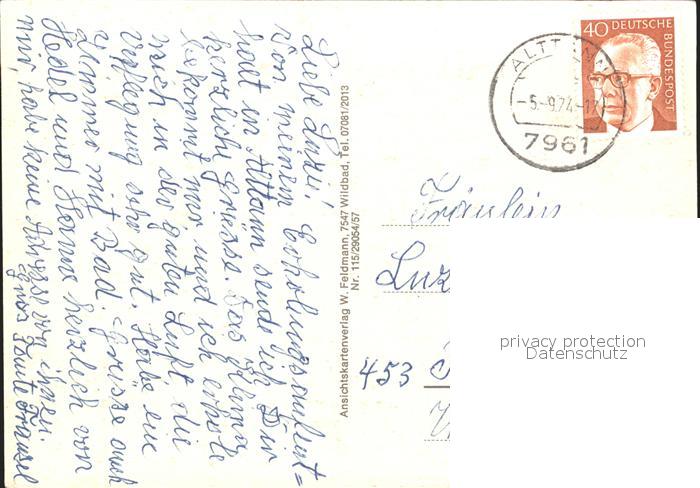 Liebe Luzi!
Von meinem Erholungsaufent=
halt in Altann sende ich Dir
herzliche Grüsse. Das Klima
bekommt mir und ich erhole
mich in der guten Luft die
Verpflegung sehr gut. Habe ein
Zimmer mit Bad. Grüsse auch
Hedel und Hanne herzlich von
mir, habe keine Adresse von ihnen.
Tante Fransel
Ansichtskartenverlag W. Feldmann, 7547 Wildbad, Tel. 07081/2013
Nr. 115/29054/57
40 DEUTSCHE
BUNDESPOST
-5.-9.74-17
7961
Fräulein
Luz
453
privacy protection
Datenschutz